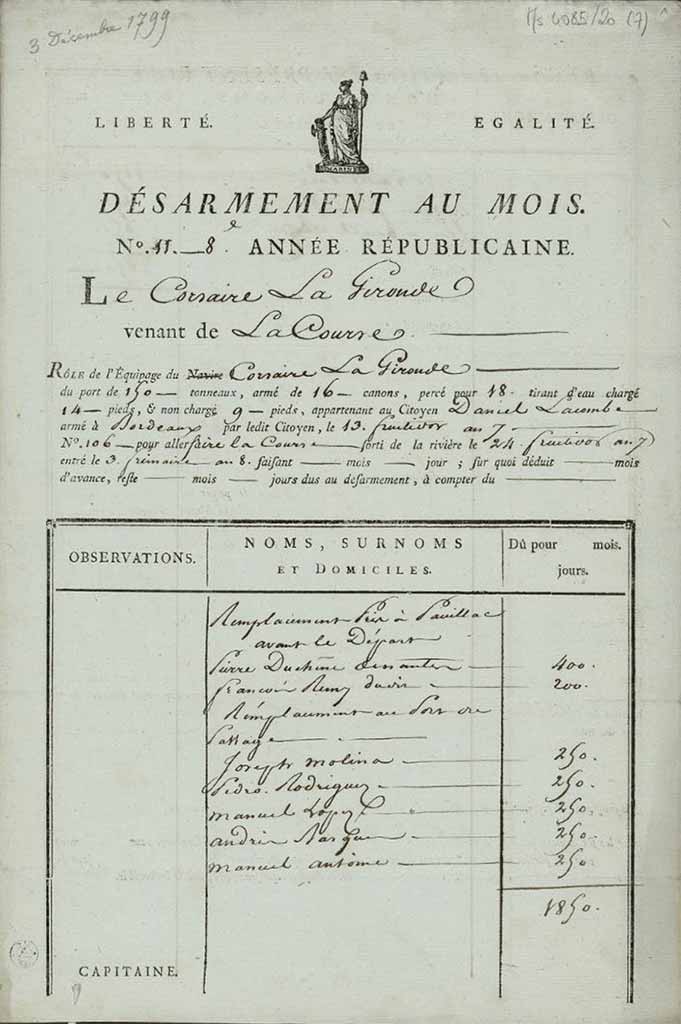 3 Décembre 1799
Ms 4085/20 (7)
LIBERTÉ. EGALITÉ.
MARINE
DÉSARMEMENT AU MOIS.
No. 11. — 8e ANNÉE RÉPUBLICAINE.
Le Corsaire La Gironde
venant de La Course
RÔLE de l'Équipage du Navire Corsaire La Gironde
du port de 150 — tonneaux, armé de 16 — canons, percé pour 18 tirant d'eau chargé
14 — pieds, & non chargé 9 — pieds, appartenant au Citoyen Daniel Lacombe
armé à Bordeaux par ledit Citoyen, le 13 fructidor an 7
No. 106 — pour aller faire la Course — sorti de la rivière le 24 fructidor an 7
entré le 3 frimaire an 8. faisant — mois — jour ; sur quoi déduit — mois
d'avance, reste — mois — jours dus au désarmement, à compter du —
OBSERVATIONS.
NOMS, SURNOMS
ET DOMICILES.
Dû pour mois.
jours.
Remplacement Pris à Pauillac
avant le Départ
Pierre Duchêne — 400.
francois Remy — 200.
Remplacement au Port du
Passage
Joseph molina — 250.
Pedro Rodriguez — 250.
manuel Lopez — 250.
andrie — 250.
manuel antoine — 250
1850.
CAPITAINE.